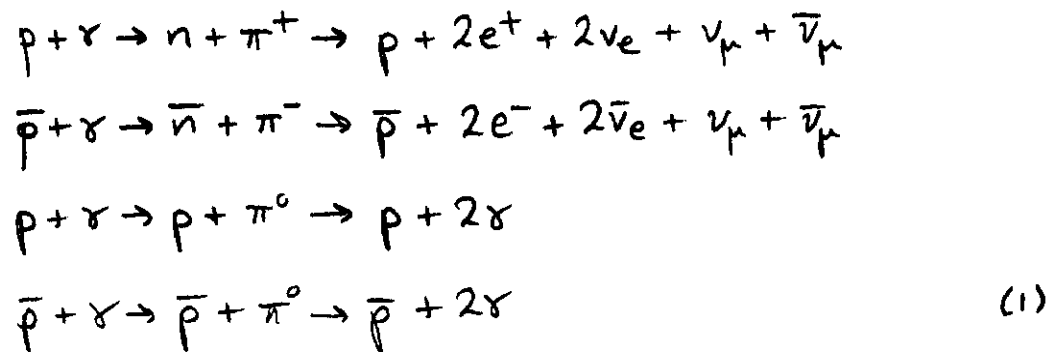 p + γ → n + π⁺ → p + 2e⁺ + 2νₑ + ν_μ + ν̄_μ
p̄ + γ → n̄ + π⁻ → p̄ + 2e⁻ + 2ν̄ₑ + ν_μ + ν̄_μ
p + γ → p + π⁰ → p + 2γ
p̄ + γ → p̄ + π⁰ → p̄ + 2γ (1)